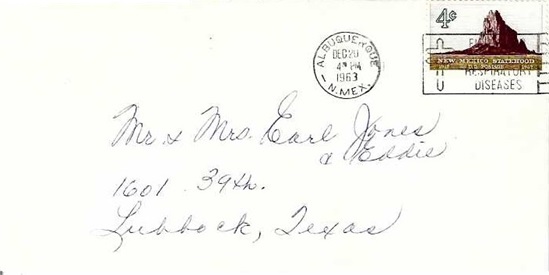 4c
ALBUQUERQUE
DEC 20
4 PM
1963
N. MEX.
NEW MEXICO STATEHOOD
1912 U.S. POSTAGE 1962
RESPIRATORY
DISEASES
Mr. & Mrs. Earl Jones
& Eddie
1601 39th.
Lubbock, Texas